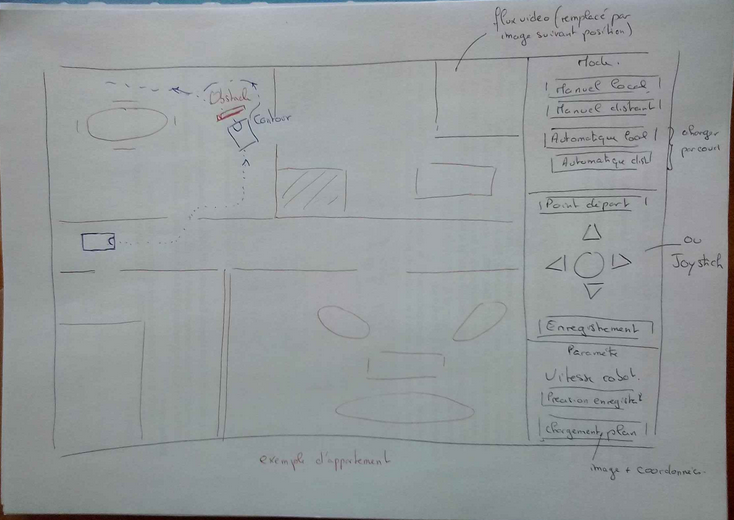 flux video (remplacé par
image suivant position)
Mode.
Manuel local
Manuel distant
Automatique local
Automatique dist
charger
parcours
Obstacle
Contour
Point départ
ou
Joystick
Enregistrement
Paramèt
Vitesse robot.
Precision enregist
Chargement plan
exemple d'appartement
image + coordonnée.